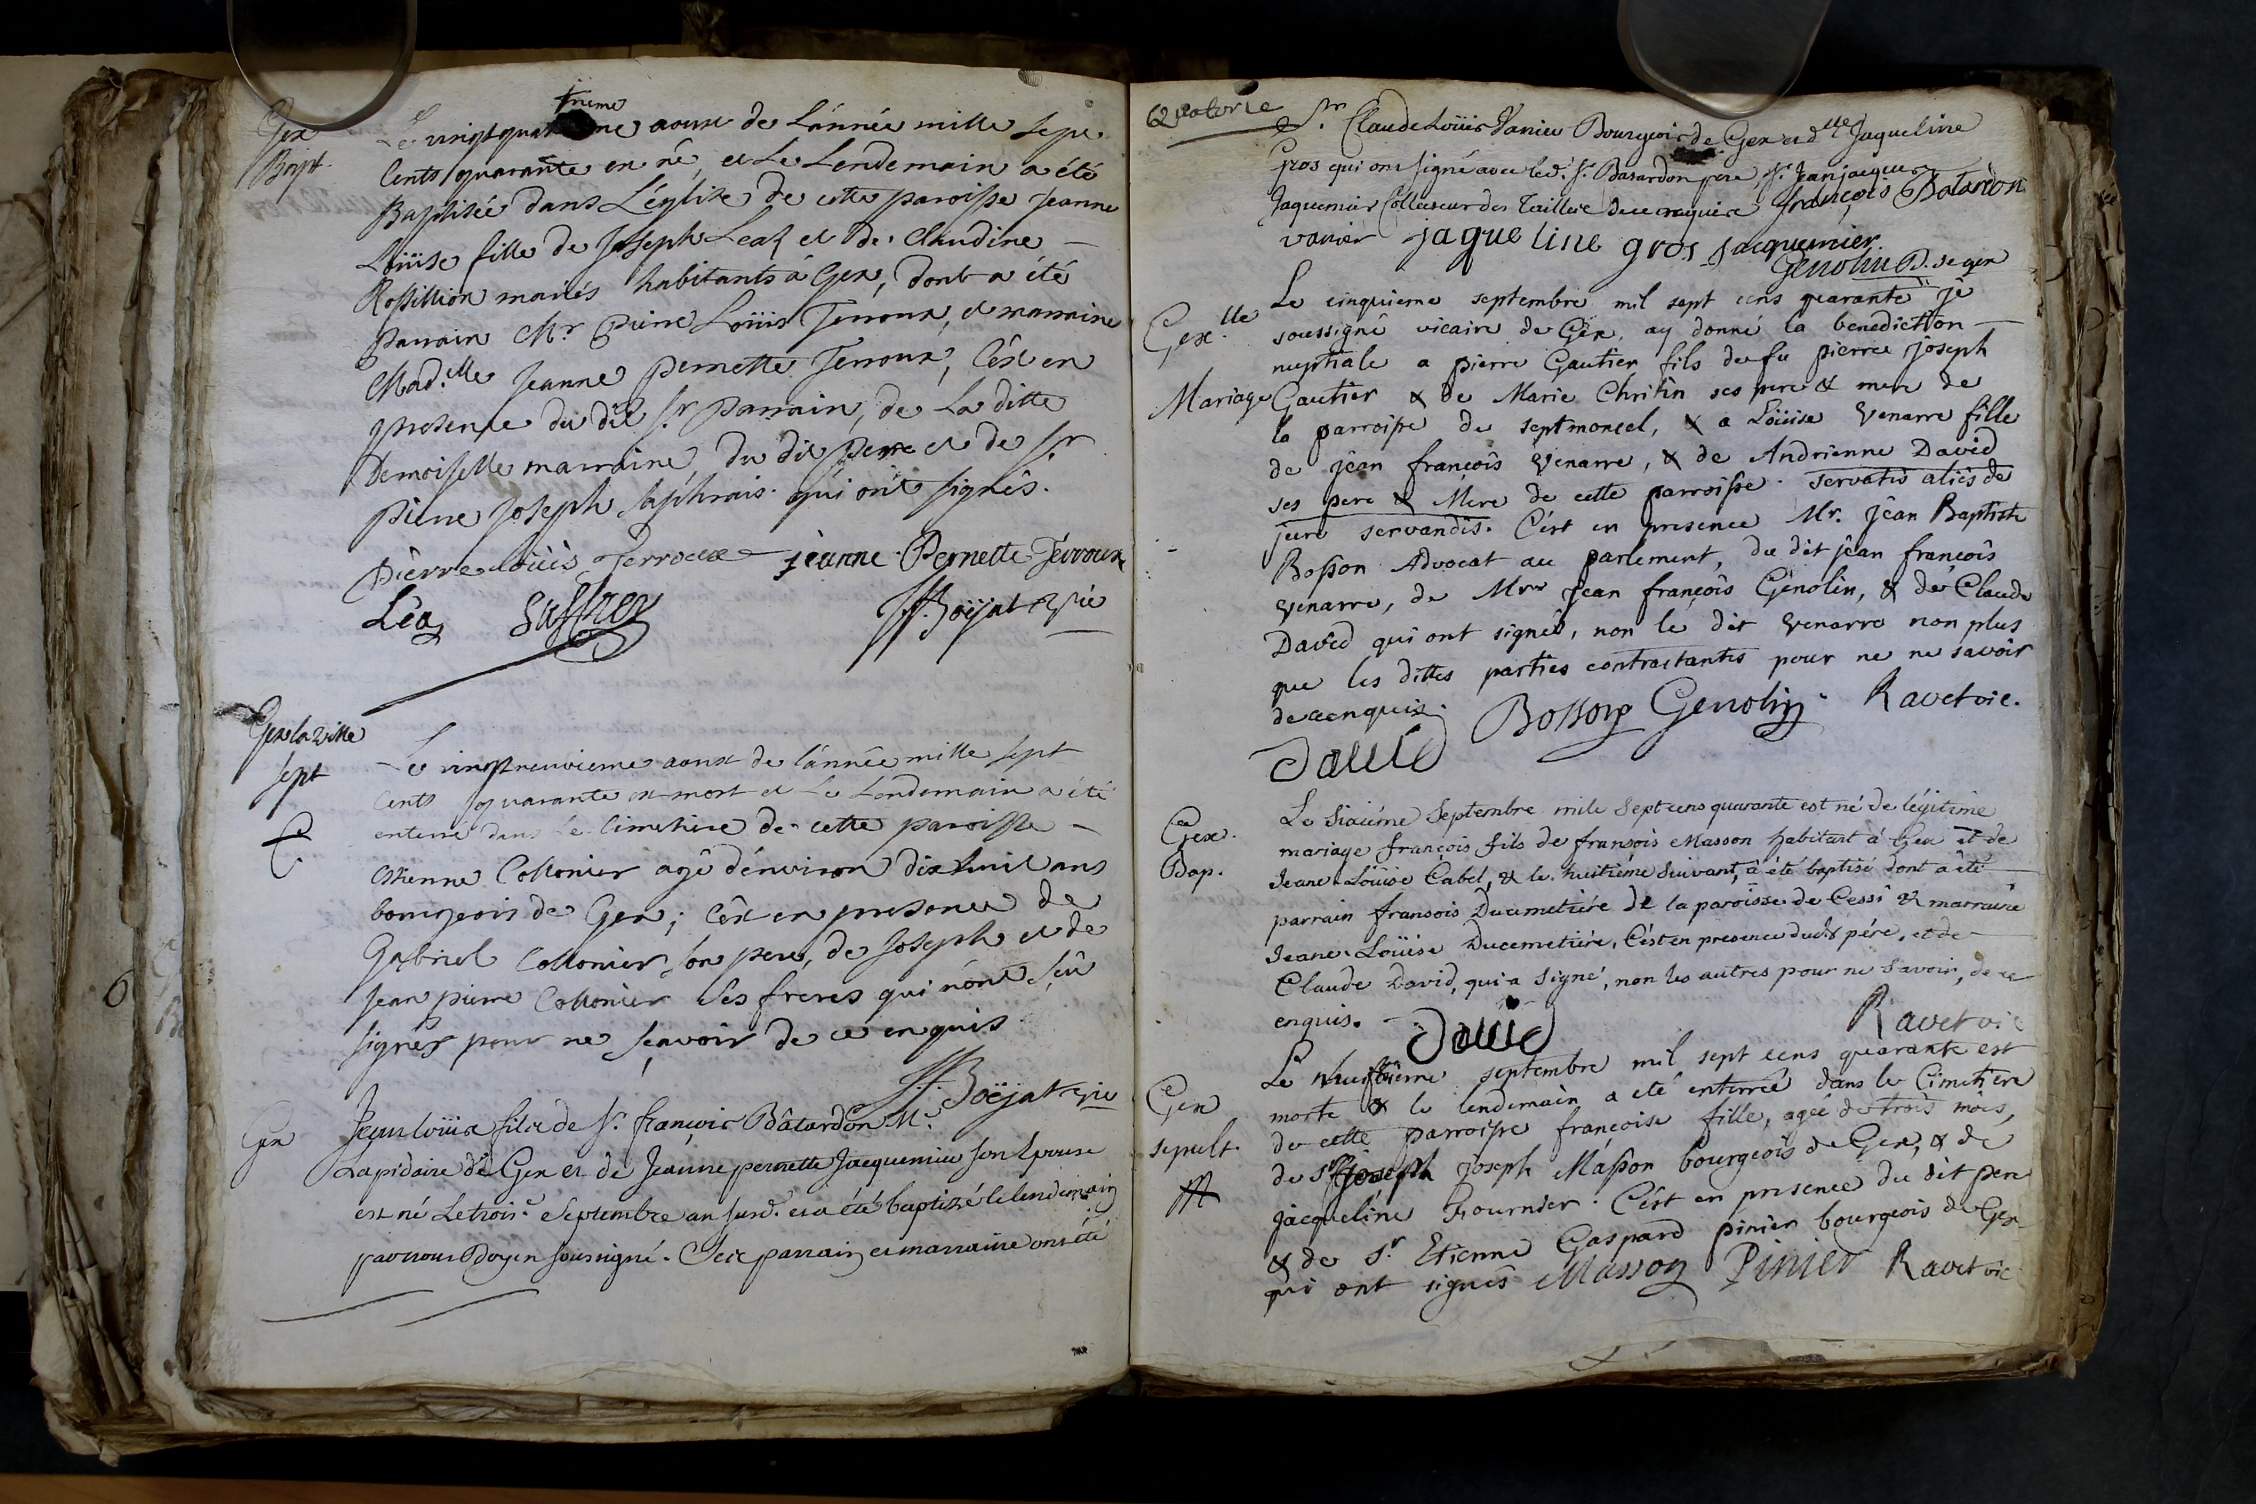 Gex
Bapt.
trieme
Le vingt quatrieme aoust de L'année mille sept
Cents quarante en né, et Le Lendemain a été
Baptisée dans L'église de cette paroisse Jeanne
Loüise fille de Joseph Leaz et de Claudine
Rossillion mariés habitants à Gex, dont a été
parrain Mr. Pierre Loüis Terroux, et marraine
Mad.elle Jeanne pernette Terroux, C'est en
presence du dit Sr. parrain, de La ditte
Demoiselle marraine, du dit pere et de Sr.
pierre Joseph qui ont signés.
Pierre Loüis Terroux Jeanne Pernette Terroux
Léaz J.F. Boëjat vic
Gex la ville
sept
Le vingtneuvieme aoust de l'année mille sept
Cents quarante est mort et Le Lendemain a été
enterré dans Le Cimetiere de cette paroisse
Estienne Collonier agé d'environ dixhuit ans
bourgeois de Gex; C'est en presence de
Gabriel Collonier son pere, de Joseph et de
Jean pierre Collonier Ses freres qui n'ont sçû
signer pour ne sçavoir de ce enquis
J.F. Boëjat vic
Gex
Jean loüis fils de Sr. françois Bâtardon M.e
Lapidaire de Gex et de Jeanne pernette Jacquemier son Epouse
est né Le trois.e Septembre an susd. et a été baptisé le lendemain
par nous Doyen soussigné. Ses parrain et marraine ont été
Quatorze
Sr. Claude Loüis Vanier Bourgeois de Gex et dlle Jaqueline
Gros qui ont signé avec led. Sr. Batardon pere, Sr. Jean jacques
Jaquemier Collecteur des Tailles de ce requise françois Batardon
vanier jaqueline gros Jacquemier
Genolin D. de gex
Gex.lle
Mariage
Le cinquieme septembre mil sept cens quarante je
soussigné vicaire de Gex, ay donné la benediction
nuptiale a pierre Gautier fils de fu pierre joseph
Gautier & de Marie Chritin ses pere & mere de
la parroisse de septmoncel, & a Loüise Venarre fille
de jean françois Venarre, & de Andrienne David
ses pere & Mere de cette parroisse. servatis aliis de
jure servandis. C'est en presence Mr. jean Baptiste
Bosson Advocat au parlement, du dit jean françois
Venarre, de Mre jean françois Génolin, & de Claude
David qui ont signé, non le dit Venarre non plus
que les dittes parties contractantes pour ne ne savoir
de ce enquis. Bosson Genolin. Ravet vic.
David
Gex.
Bap.
Le Sixiéme Septembre mile Sept cens quarante est né de légitime
mariage françois fils de fransois Masson habitant à Gex et de
Jeane Loüise Cabel, & le huitiéme Suivant, à été baptisé dont a été
parrain fransois Ducimetiére de la paroisse de Cessi & marraine
Jeane Loüise Ducemetiére, C'est en presence dudt pére, et de
Claude David, qui a signé, non les autres pour ne savoir, de ce
enquis.
David
Ravet vic
Gex
sepult.
Le septembre mil sept cens quarante est
morte & le lendemain a eté enterrée dans le Cimetiere
de cette parroisse françoise fille, agée de trois mois,
de Sr joseph joseph Masson bourgeois de Gex, & de
jacqueline Fournier. C'est en presence du dit pere
& de Sr. Etienne Gaspard pinier bourgeois de Gex
qui ont signés Masson Pinier Ravet vic